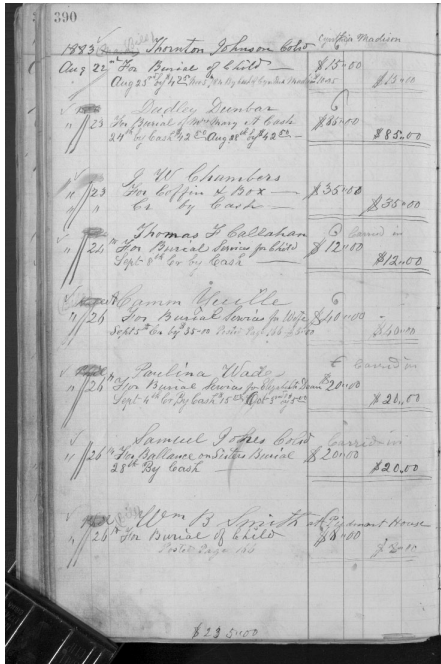 390
Cynthia Madison
1883 Thornton Johnson Cold
Aug 22nd For Burial of Child — $15.00
Aug 25th by $4.25 $15.00
Dudley Dunbar
" 23 For Burial of Mrs Mary A Cash $85.00
24th by Cash $42.50 Aug 28th by $42.50 $85.00
J W Chambers
" 23 For Coffin & Box — $35.00
" " Cr by Cash — $35.00
Thomas F Callahan Carrid in
" 24th For Burial Services for Child $12.00
Sept 8th Cr by Cash $12.00
Camm Yuille
" 26 For Burial Services for Wife $40.00
Sept 5th Cr by 35.00 Posted Page 166 $40.00
Paulina Wade Carrid in
" 26th For Burial Services for Elizabeth Dean $20.00
Sept 4th Cr By Cash $15.00 Oct 5th by 5.00 $20.00
Samuel Jones Cold Carrid in
" 26th For Ballance on Sisters Burial $20.00
28th By Cash $20.00
Wm B Smith At Piedmont House
" 26th For Burial of Child $8.00
Posted Page 166 $8.00
$235.00